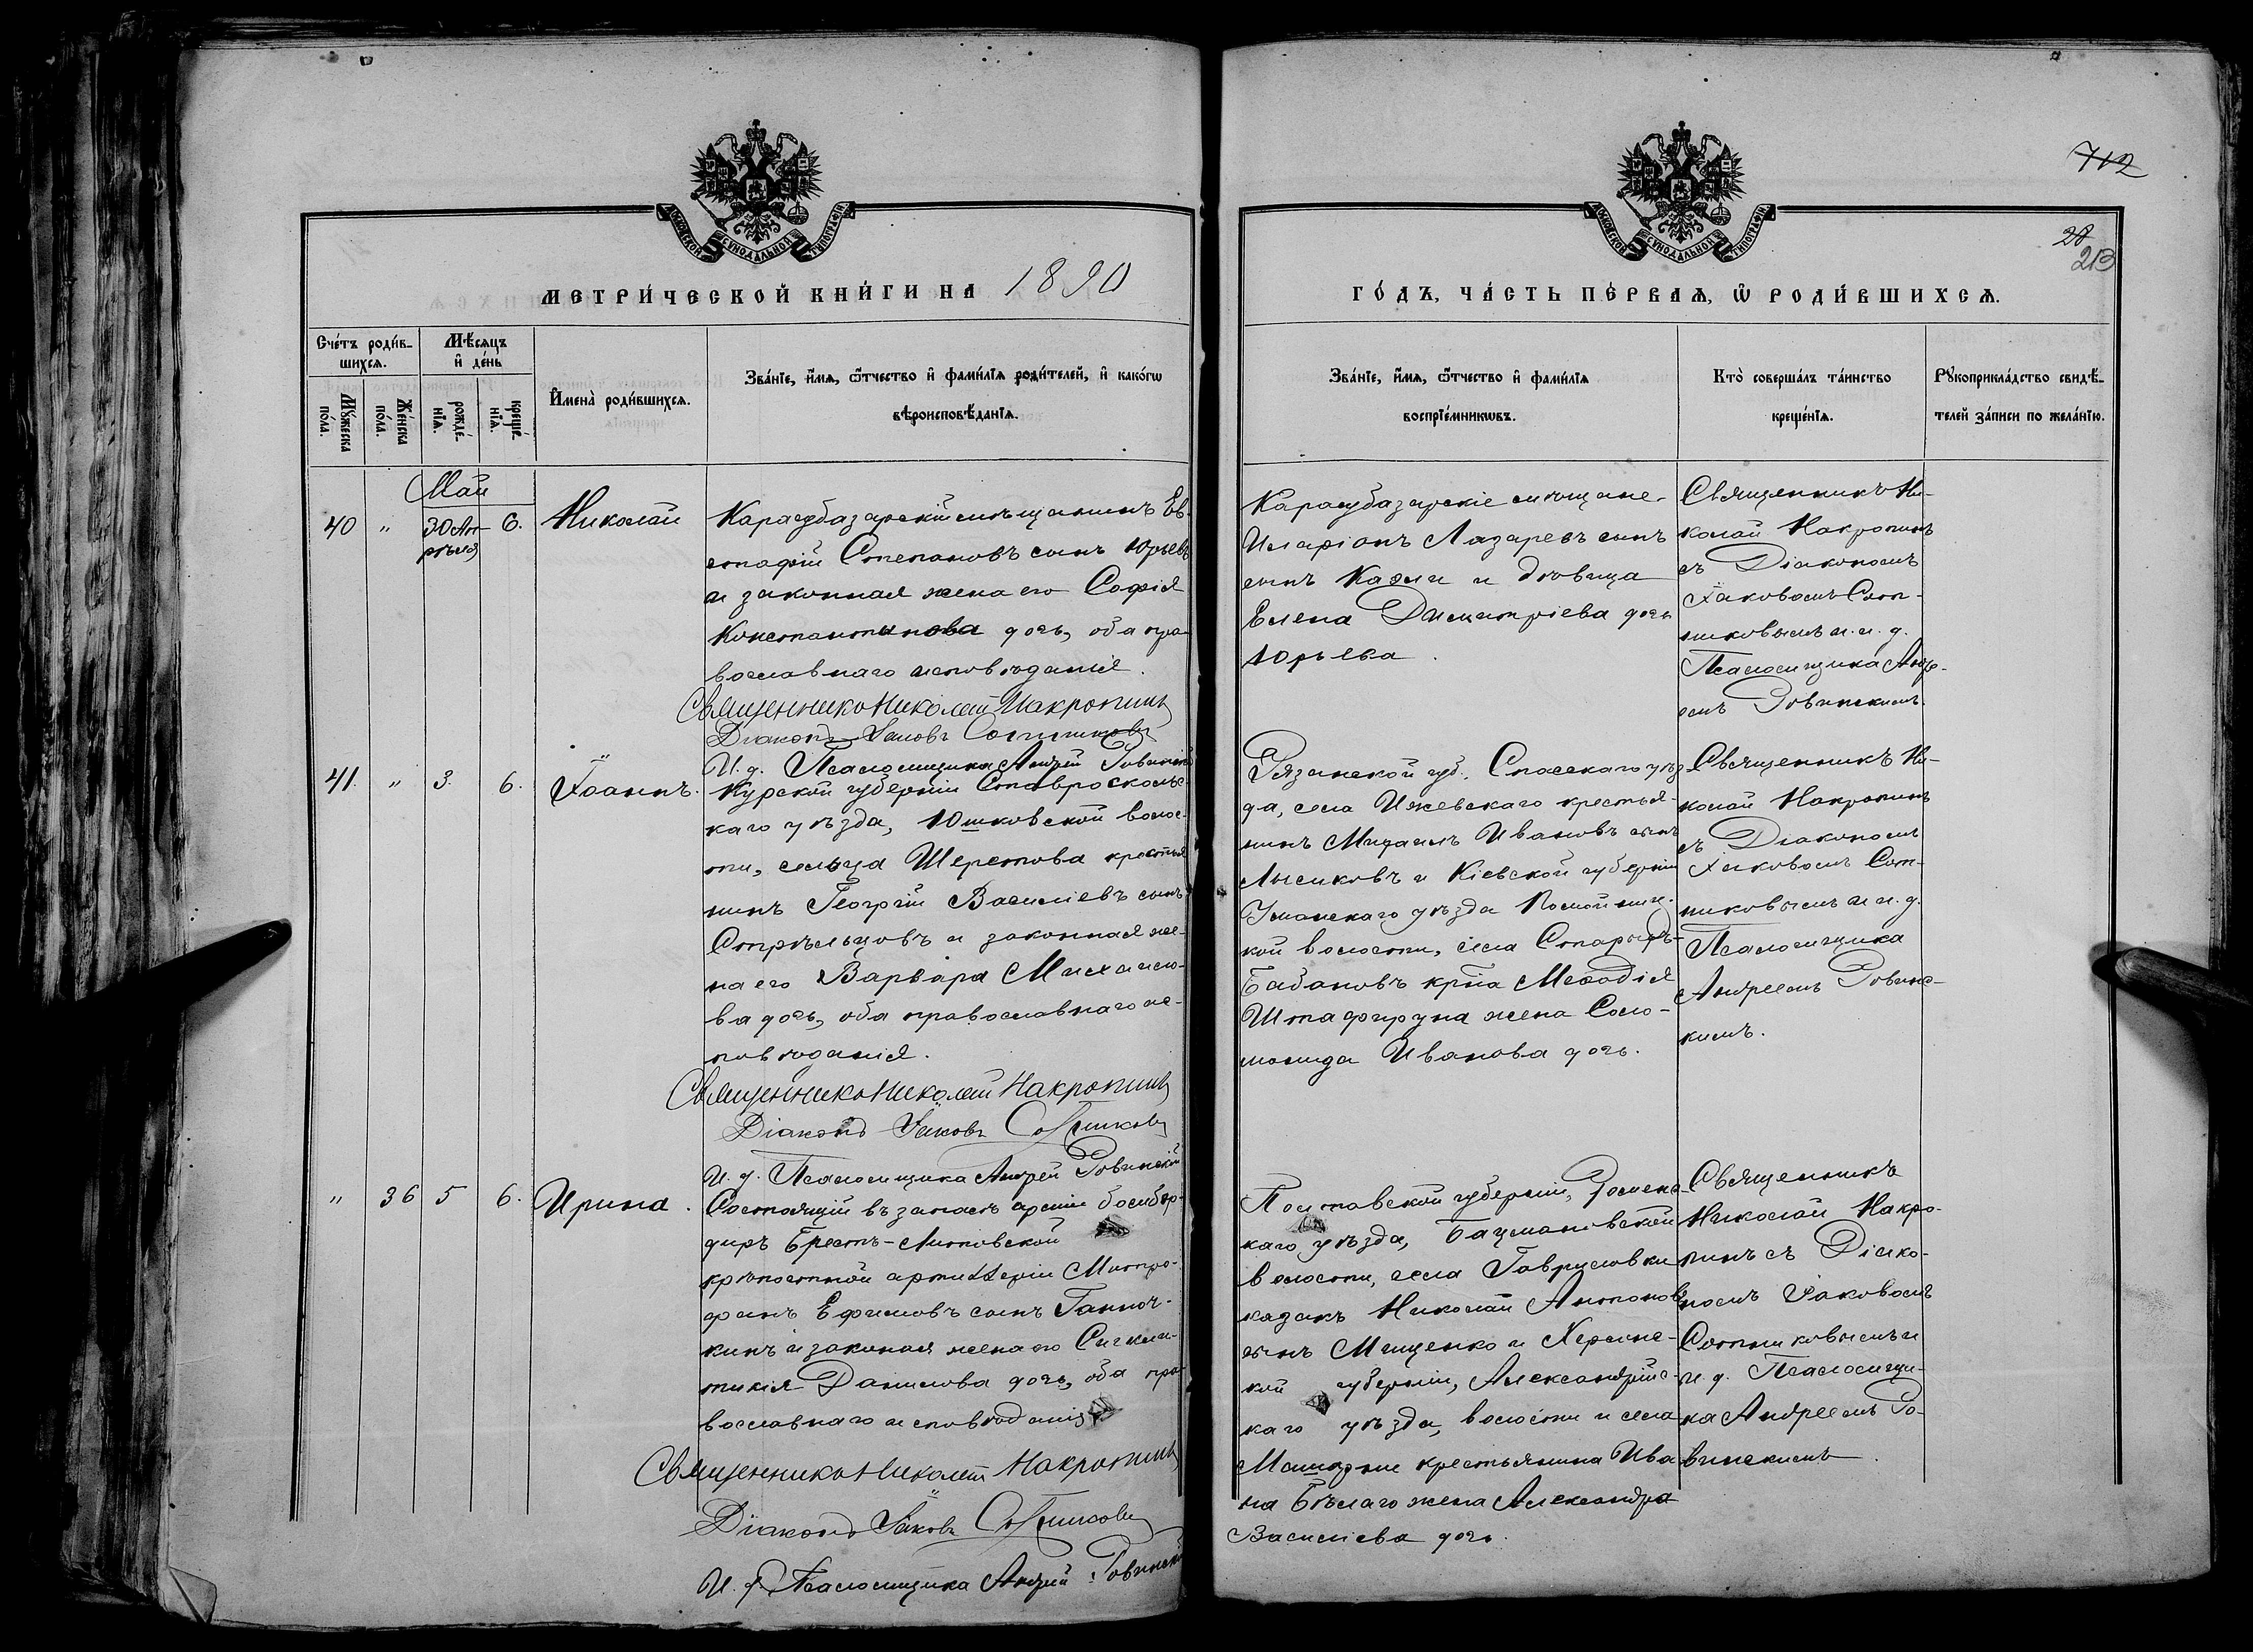 712
28
213
МОСКОВСКОЙ СУНОДАЛЬНОЙ ТИПОГРАФІИ
МОСКОВСКОЙ СУНОДАЛЬНОЙ ТИПОГРАФІИ
МЕТРИ́ЧЕСКОЙ КНИ́ГИ НА 1890
ГО́ДЪ, ЧА́СТЬ ПЕ́РВАѦ, Ѡ҆ РОДИ́ВШИХСѦ.
Сче́тъ роди́в-
шихсѧ.
Мꙋ́жеска
по́ла.
Же́нска
по́ла.
Мѣ́сѧцъ
и҆ де́нь
рожде́-
нїѧ.
креще́-
нїѧ.
И҆мена̀ роди́вшихсѧ.
Зва́нїе, и҆́мѧ, ѻ҆́тчество и҆ фами́лїѧ роди́телей, и҆ како́гѡ
вѣроисповѣ́данїѧ.
Зва́нїе, и҆́мѧ, ѻ҆́тчество и҆ фами́лїѧ
воспрїе́мникѡвъ.
Кто̀ соверша́лъ та́инство
креще́нїѧ.
Рꙋкоприкла́дство свидѣ́-
телей за́писи по жела́нїю.
Май
40 " 30 Ап- 6. Николай
рѣля
Карасубазарскій мѣщанинъ Ев-
стафій Степановъ сынъ Юрьевъ
и законная жена его Софія
Константинова дочь, оба пра-
вославнаго исповѣданія.
Священникъ Николай Накропинъ
Діаконъ Іаковъ Сотниковъ
И. д. Псаломщика Андрей Ровинскій
Карасубазарскіе мѣщане-
Иларіонъ Лазаревъ сынъ
сынъ Казли и дѣвица
Елена Димитріева дочь
Юрьева.
Священникъ Ни-
колай Накропинъ
съ Діакономъ
Іаковомъ Сот-
никовымъ и и. д.
Псаломщика Андре-
емъ Ровинскимъ.
41. " 3. 6. Іоаннъ.
Курской губерніи Старооскольс-
каго уѣзда, Юшковской волос-
ти, сельца Шереметова крестья-
нинъ Георгій Василіевъ сынъ
Стрѣльцовъ и законная же-
на его Варвара Михаило-
ва дочь, оба православнаго ис-
повѣданія.
Священникъ Николай Накропинъ
Діаконъ Іаковъ Сотниковъ
И. д. Псаломщика Андрей Ровинскій
Рязанской губ., Спасскаго уѣз-
да, села Ижевскаго крестья-
нинъ Михаилъ Ивановъ сынъ
Лысиковъ и Кіевской губерніи
Уманскаго уѣзда
кой волости, села Старыхъ-
Бабановъ кр-на Меѳодія
Штафируна жена Соло-
монида Иванова дочь.
Священникъ Ни-
колай Накропинъ
съ Діакономъ
Іаковомъ Сот-
никовымъ и и. д.
Псаломщика
Андреемъ Ровинс-
кимъ.
" 36 5 6. Ирина.
Состоящій въ запасѣ арміи бомбар-
диръ Брестъ-Литовской
крѣпостной артиллеріи Митро-
фанъ Ефимовъ сынъ Ганноч-
кинъ и законая жена его Сигкли-
тикія Данилова дочь, оба пра-
вославнаго исповѣданія
Священникъ Николай Накропинъ
Діаконъ Іаковъ Сотниковъ
И. д. Псаломщика Андрей Ровинскій
Полтавской губерніи, Роменс-
каго уѣзда, Бацмановской
волости, села Гаврусовки
казакъ Николай Антоновъ
сынъ Мищенко и Херсонс-
кой губерніи, Александрійс-
каго уѣзда, волости и села
Машорни крестьянина Ива-
на Бѣлаго жена Александра
Василіева дочь.
Священникъ
Николай Накро-
пинъ съ Діако-
номъ Іаковомъ
Сотниковымъ и
и. д. Псаломщи-
ка Андреемъ Ро-
винскимъ.